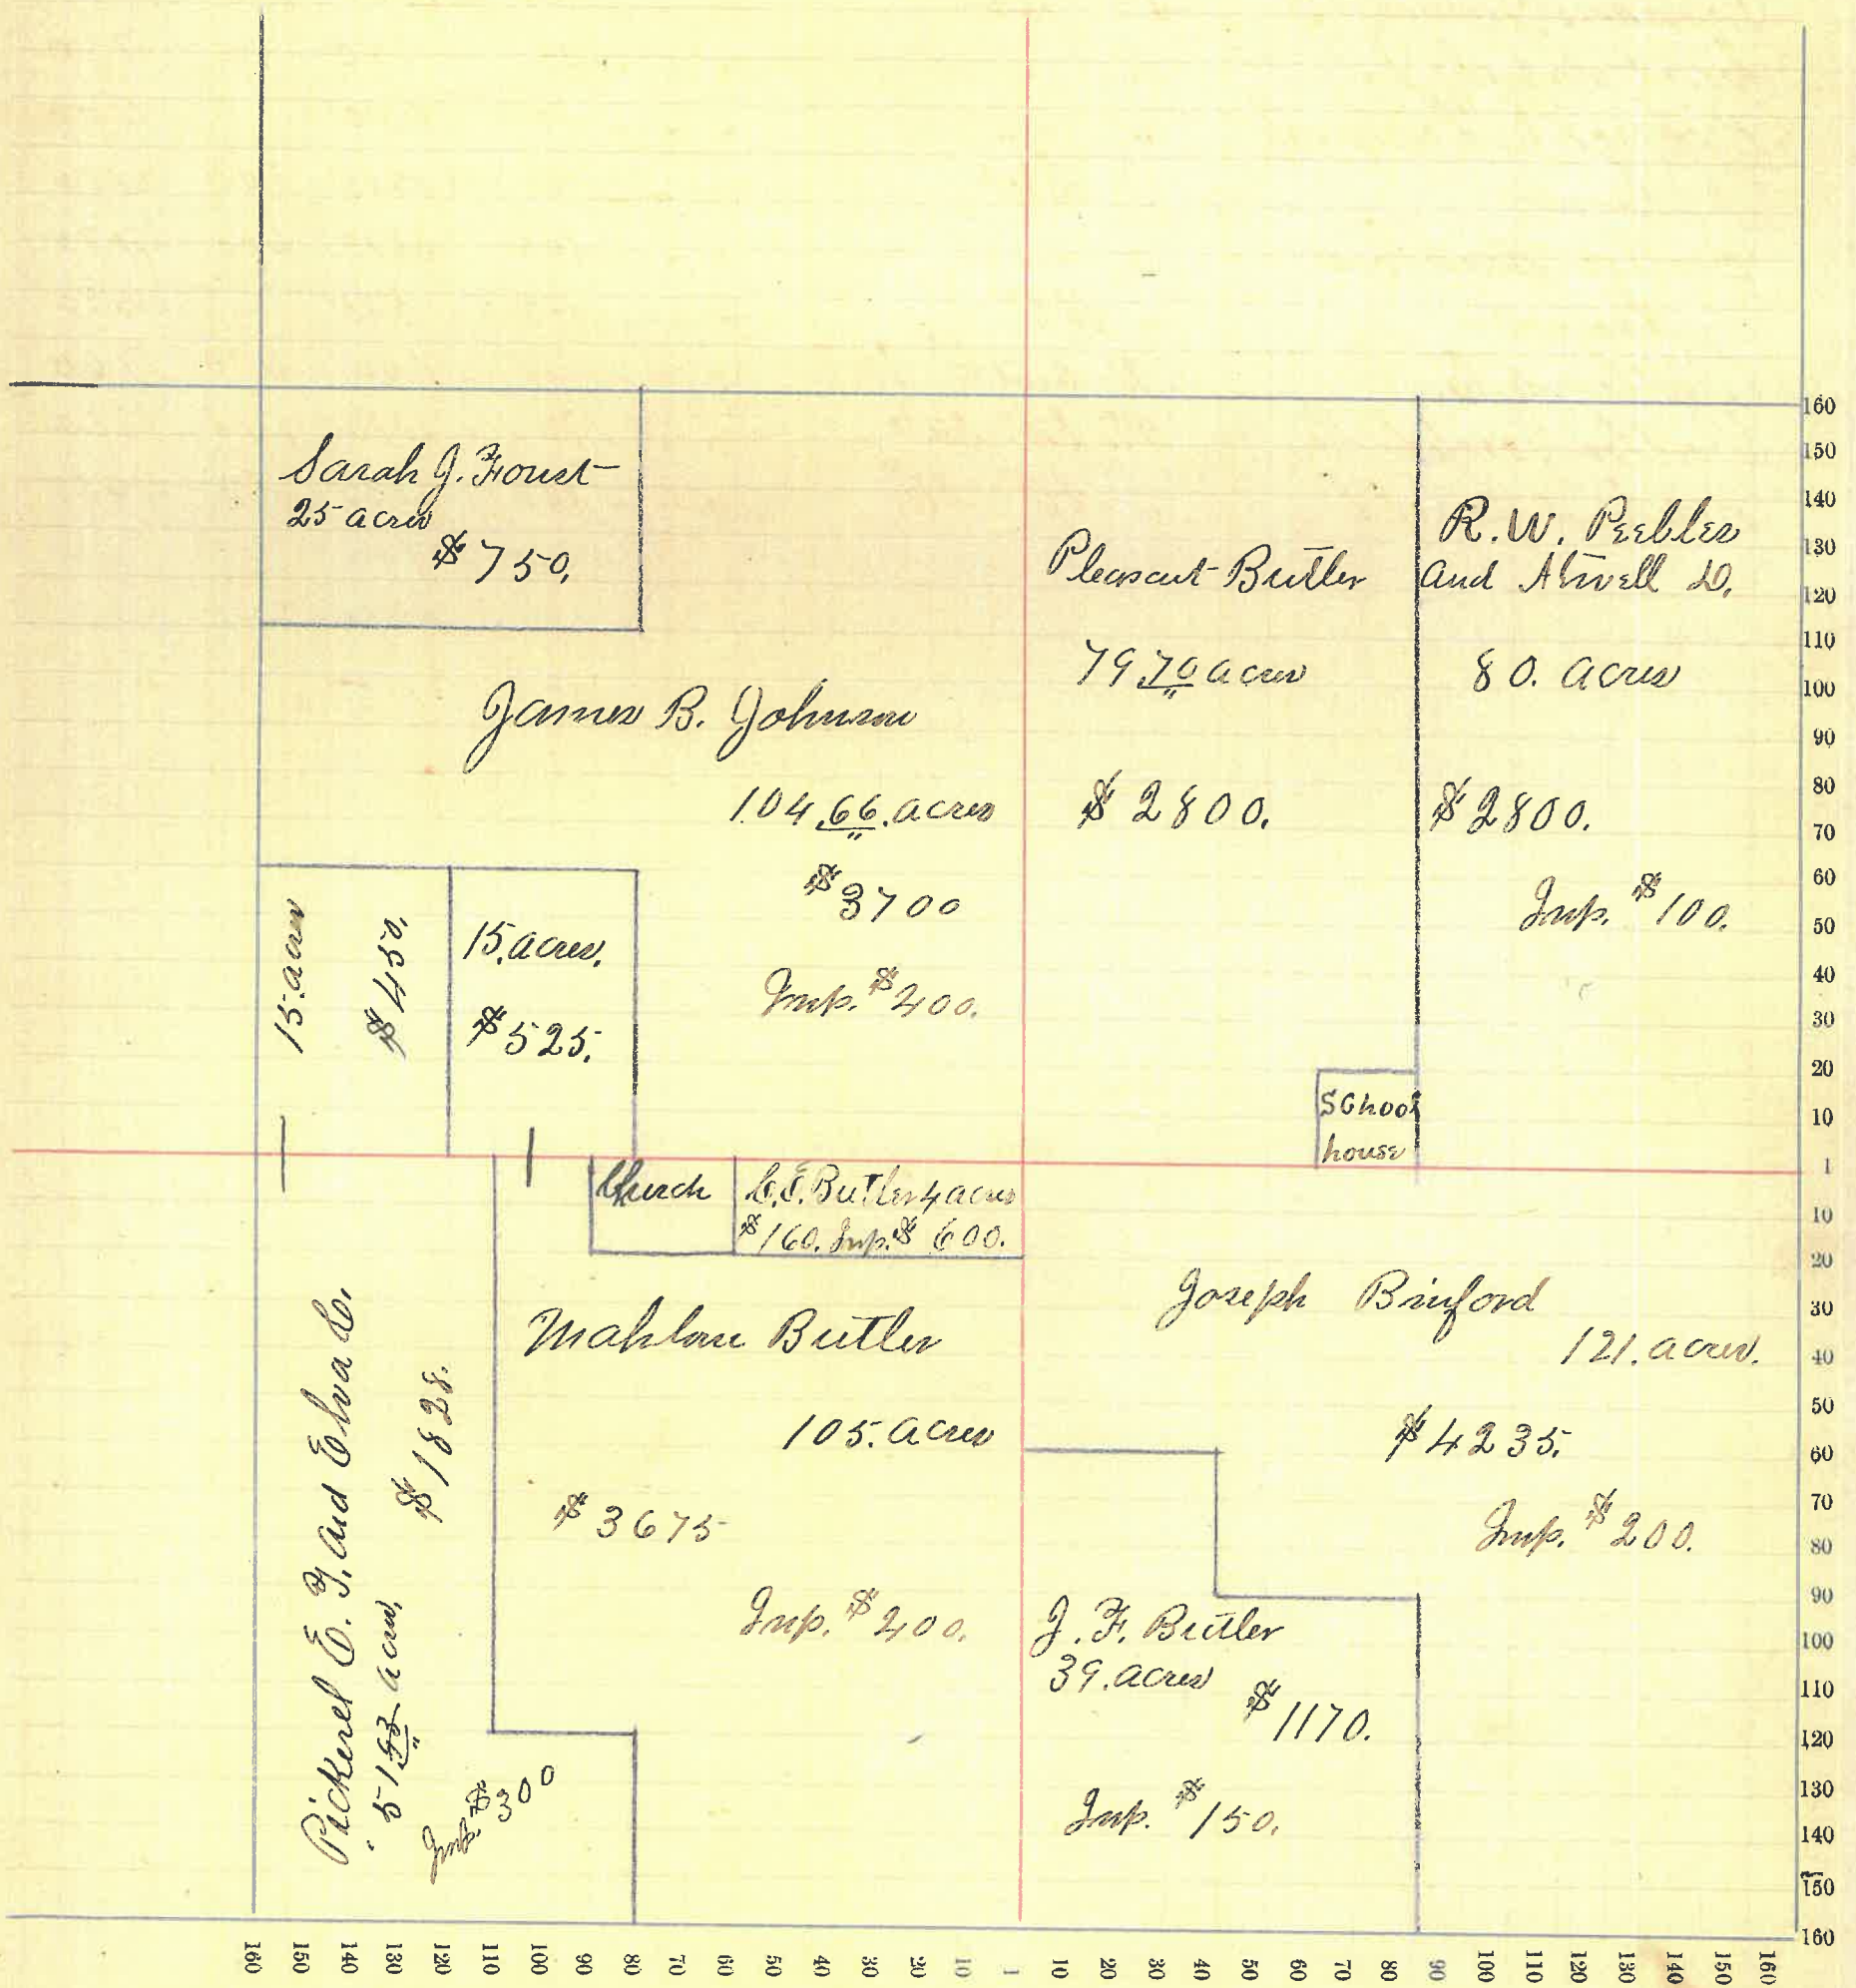 Sarah J. Foust
25 acres
$750.
James B. Johnson
104.66. acres
$3700
Imp. $400.
15. acres
$450.
15. acres.
$525.
Pleasant Butler
79 70 acres
$2800.
R. W. Peebles
and Atwell D.
80. acres
$2800.
Imp. $100.
SChool
house
Church
C. E. Butler 4 acres
$160. Imp. $600.
Mahlon Butler
105. acres
$3675
Imp. $400.
Pickerel E. T. and Elva C.
51 acres.
$1828.
Imp. $300
Joseph Binford
121. acres.
$4235.
Imp. $200.
J. F. Butler
39. acres
$1170.
Imp. $150.
160
150
140
130
120
110
100
90
80
70
60
50
40
30
20
10
1
10
20
30
40
50
60
70
80
90
100
110
120
130
140
150
160
160 150 140 130 120 110 100 90 80 70 60 50 40 30 20 10 1 10 20 30 40 50 60 70 80 90 100 110 120 130 140 150 160